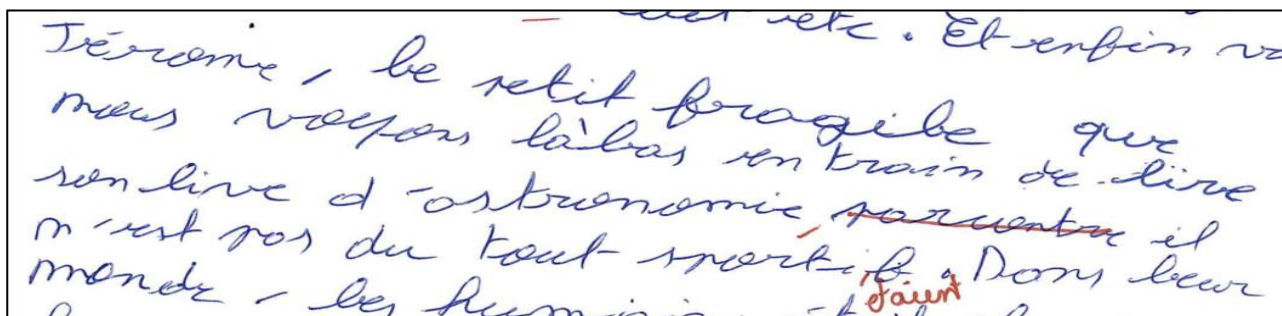 etc. Et enfin
Jérome, le petit fragile que
nous voyons là'bas en train de lire
son live d'astronomie, par contre il
n'est pas du tout sportif. Dans leur
étaient
monde, les humains